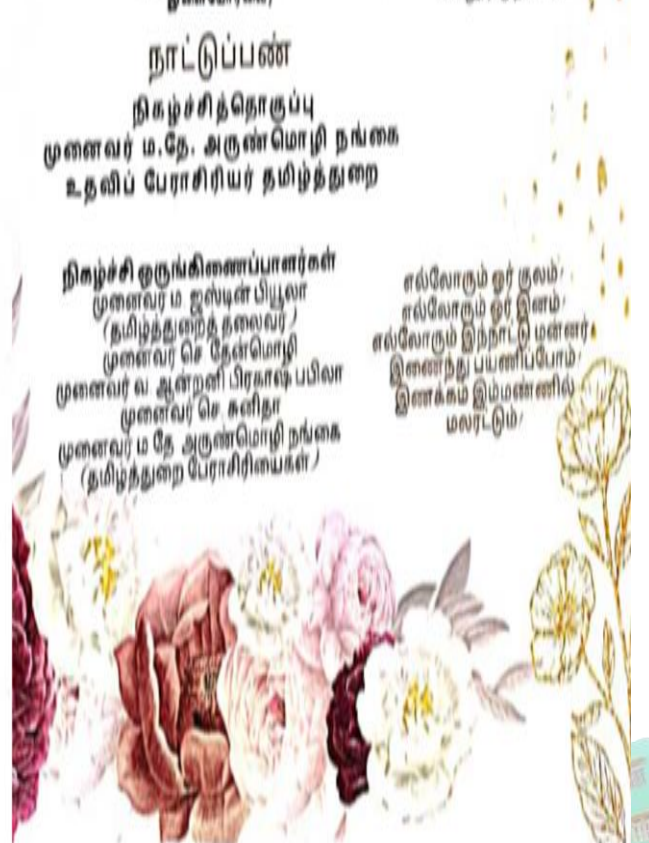 நாட்டுப்பண்
நிகழ்ச்சித்தொகுப்பு
முனைவர் ம.தே. அருண்மொழி நங்கை
உதவிப் பேராசிரியர் தமிழ்த்துறை
நிகழ்ச்சி ஒருங்கிணைப்பாளர்கள்
முனைவர் ம ஜஸ்டின் பியூலா
(தமிழ்த்துறைத் தலைவர்)
முனைவர் செ தேன்மொழி
முனைவர் வ ஆன்றனி பிரகாஷ் பபிலா
முனைவர் செ கனிதா
முனைவர் ம தே அருண்மொழி நங்கை
(தமிழ்த்துறை பேராசிரியைகள்)
எல்லோரும் ஓர் குலம்/
எல்லோரும் ஓர் இனம்/
எல்லோரும் இந்நாட்டு மன்னர்/
இணைந்து பயணிப்போம்/
இணக்கம் இம்மண்ணில்
மலரட்டும்/